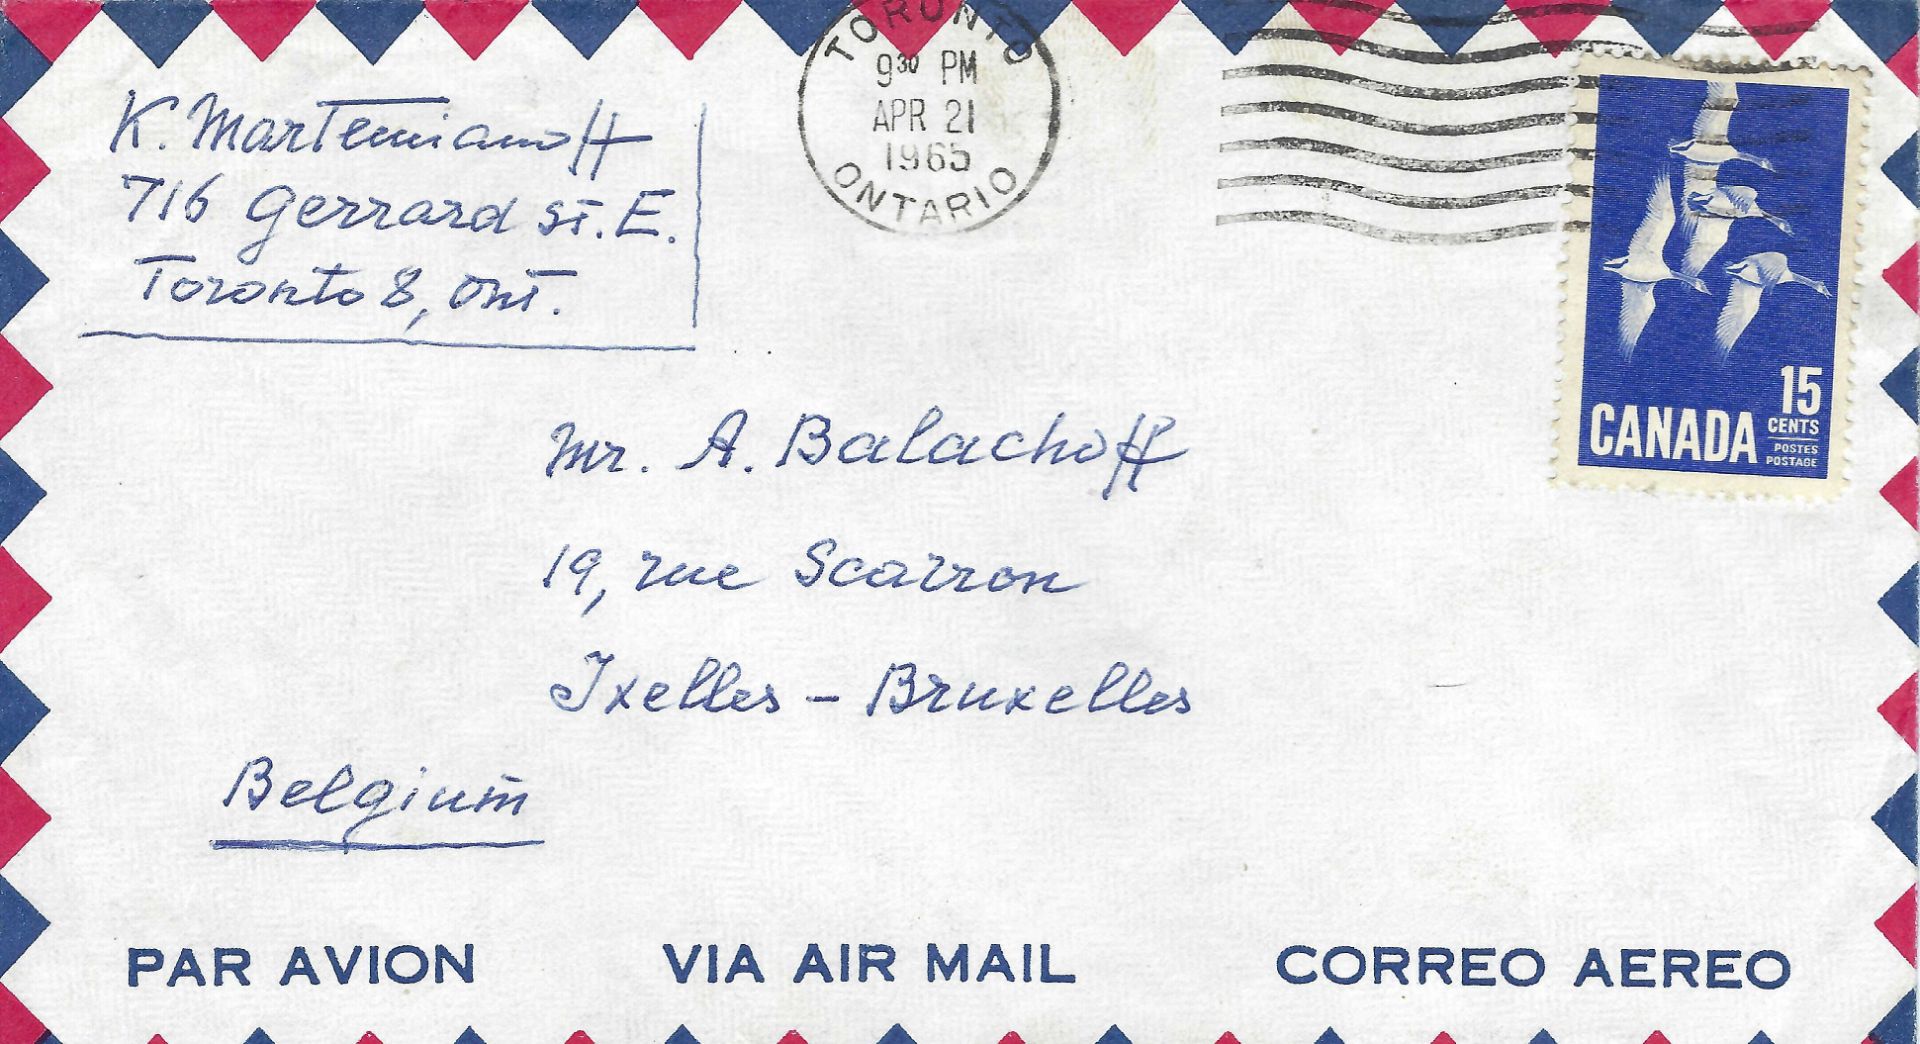 K. Martemianoff
716 Gerrard St. E.
Toronto 8, Ont.
TORONTO
9 30 PM
APR 21
1965
ONTARIO
15
CENTS
CANADA
POSTES
POSTAGE
Mr. A. Balachoff
19, rue Scarron
Ixelles - Bruxelles
Belgium
PAR AVION
VIA AIR MAIL
CORREO AEREO